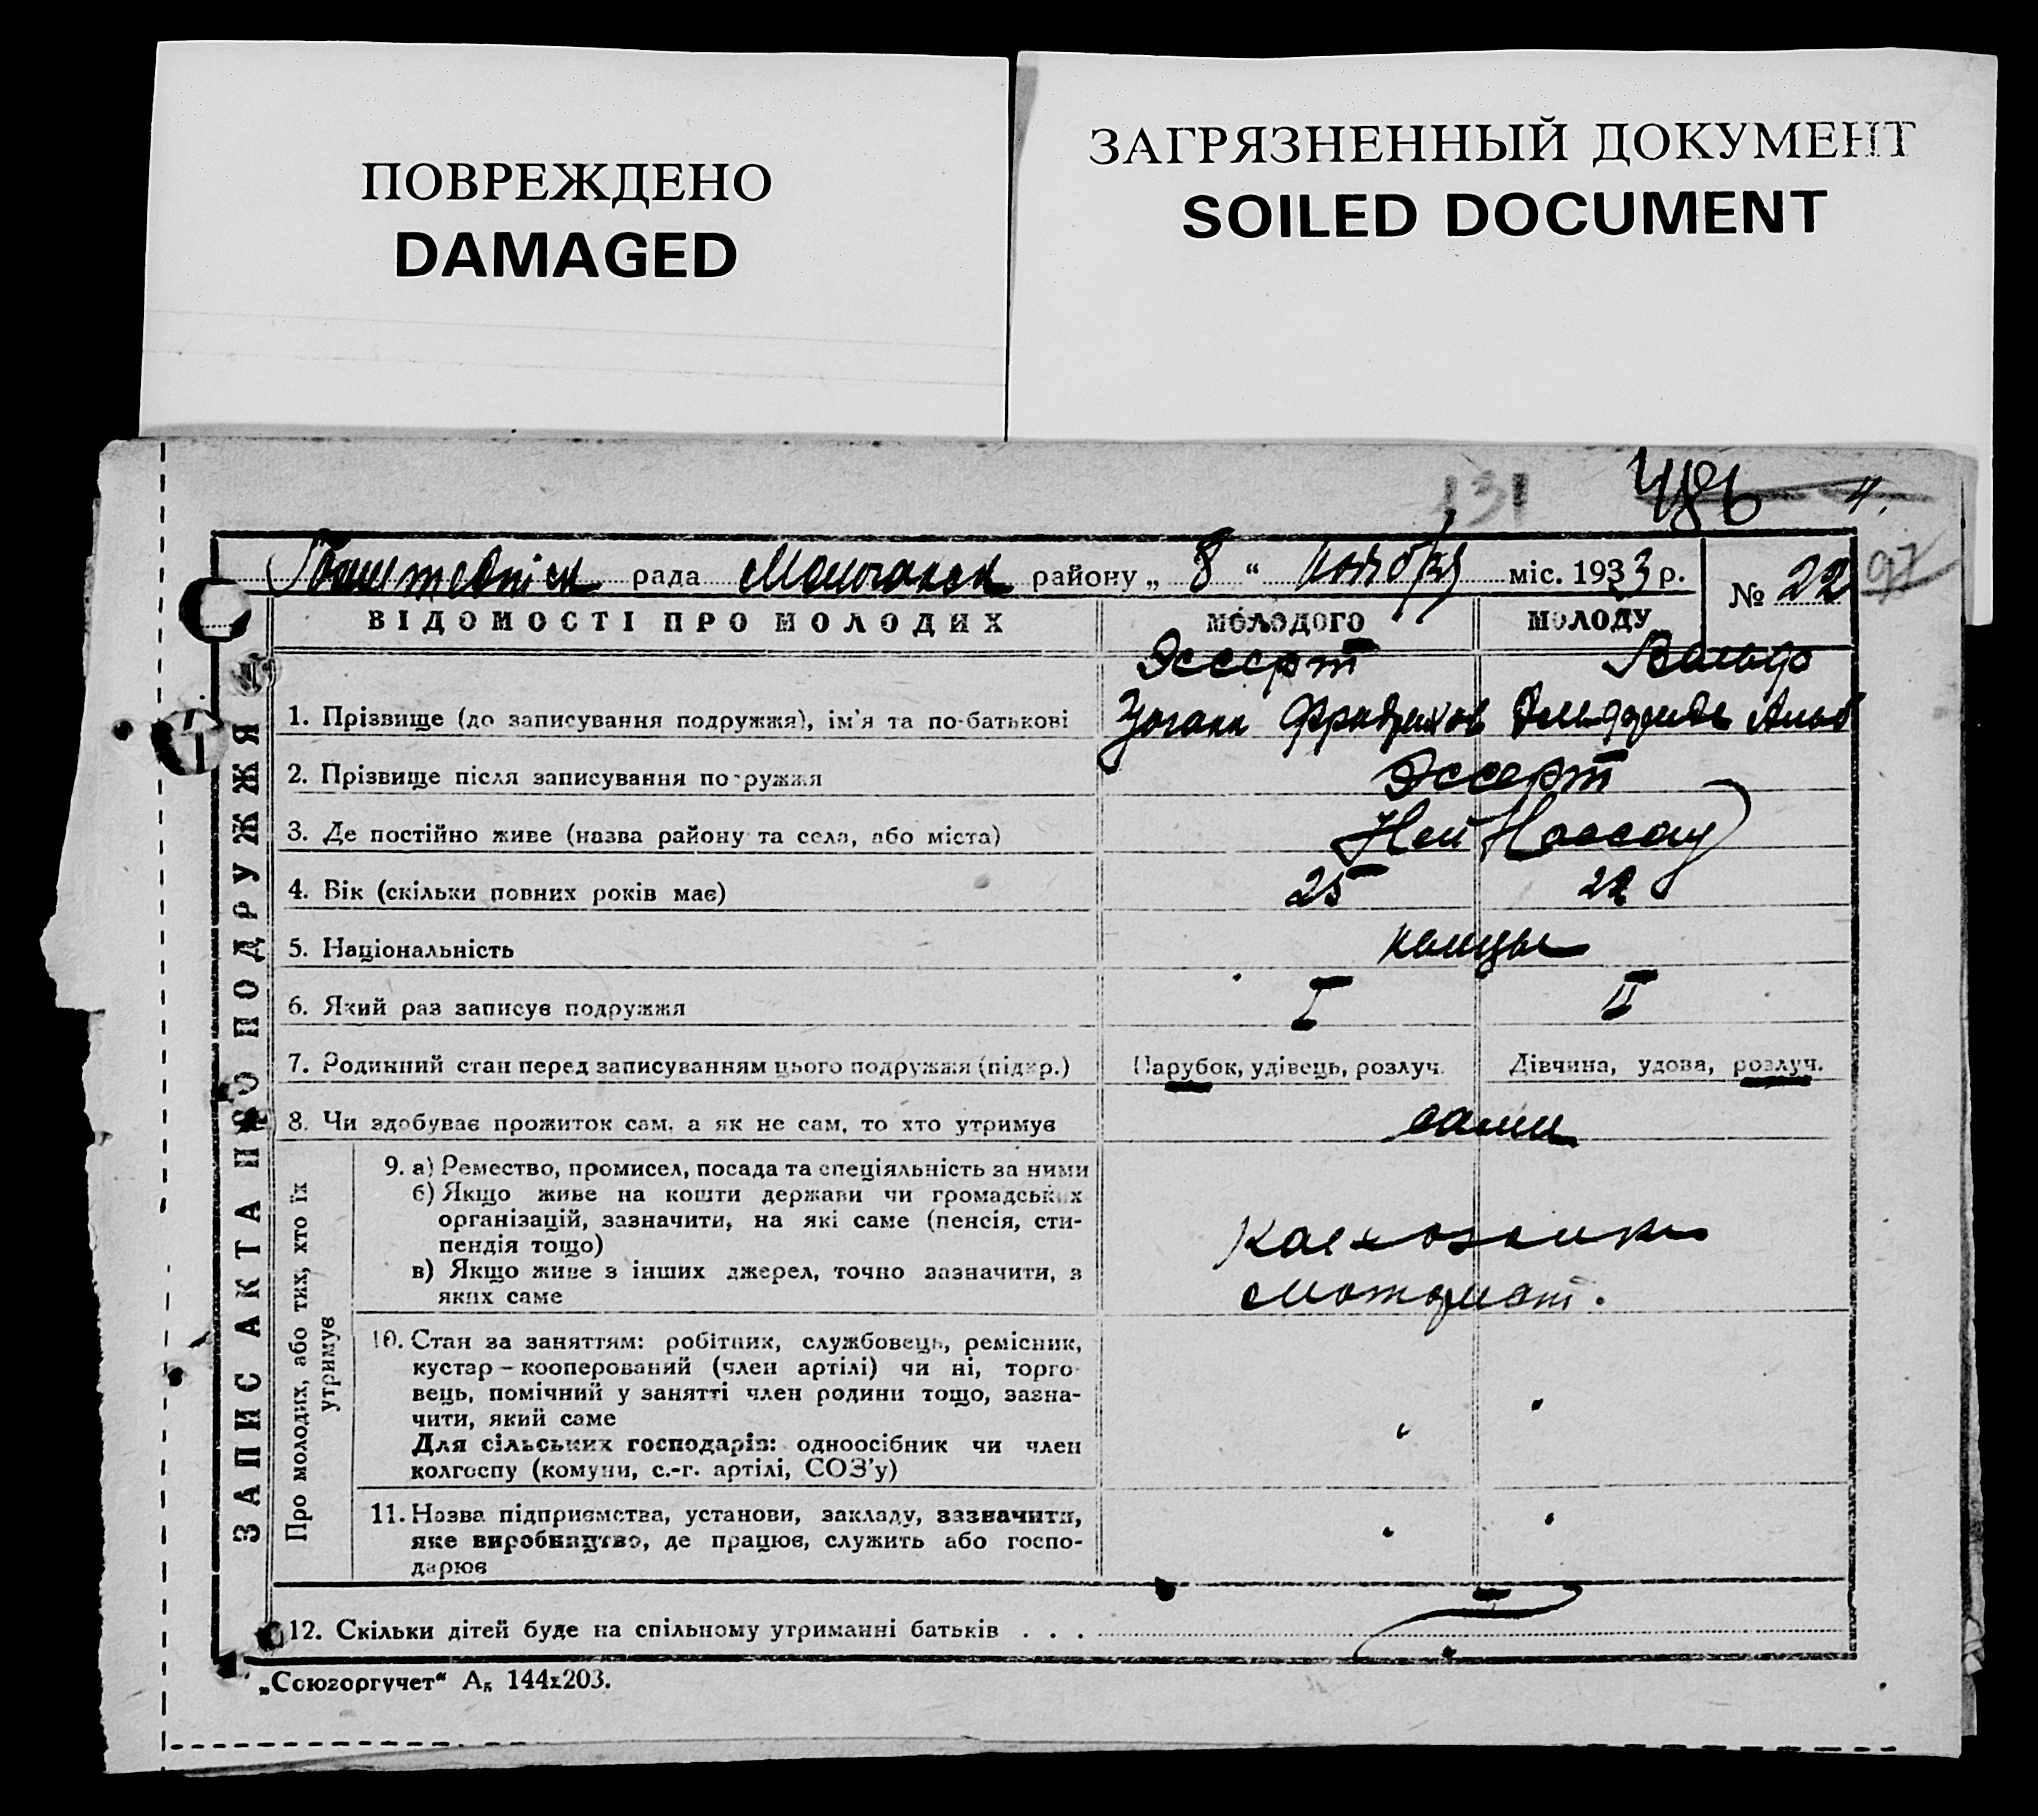 ПОВРЕЖДЕНО
DAMAGED
ЗАГРЯЗНЕННЫЙ ДОКУМЕНТ
SOILED DOCUMENT
131
рада району „ 8 “ ноября міс. 1933 р. № 22 97
ЗАПИС АКТА ПРО ПОДРУЖЖЯ
ВІДОМОСТІ ПРО МОЛОДИХ МОЛОДОГО МОЛОДУ
Эссерт Вальде
1. Прізвище (до записування подружжя), ім'я та по-батькові
2. Прізвище після записування подружжя Эссерт
3. Де постійно живе (назва району та села, або міста) Ней Нассау
4. Вік (скільки повних років має) 25 22
5. Національність немцы
6. Який раз записує подружжя I II
7. Родинний стан перед записуванням цього подружжя (підкр.) Парубок, удівець, розлуч. Дівчина, удова, розлуч.
8. Чи здобуває прожиток сам, а як не сам, то хто утримує сами
Про молодих, або тих, хто їх утримує
9. а) Ремество, промисел, посада та спеціяльність за ними
б) Якщо живе на кошти держави чи громадських
організацій, зазначити, на які саме (пенсія, сти-
пендія тощо)
в) Якщо живе з інших джерел, точно зазначити, з
яких саме
10. Стан за заняттям: робітник, службовець, ремісник,
кустар – кооперований (член артілі) чи ні, торго-
вець, помічний у занятті член родини тощо, зазна-
чити, який саме
Для сільських господарів: одноосібник чи член
колгоспу (комуни, с.-г. артілі, СОЗ'у)
11. Назва підприємства, установи, закладу, зазначити,
яке виробництво, де працює, служить або госпо-
дарює
12. Скільки дітей буде на спільному утриманні батьків . . .
„Союзоргучет“ А₅ 144х203.